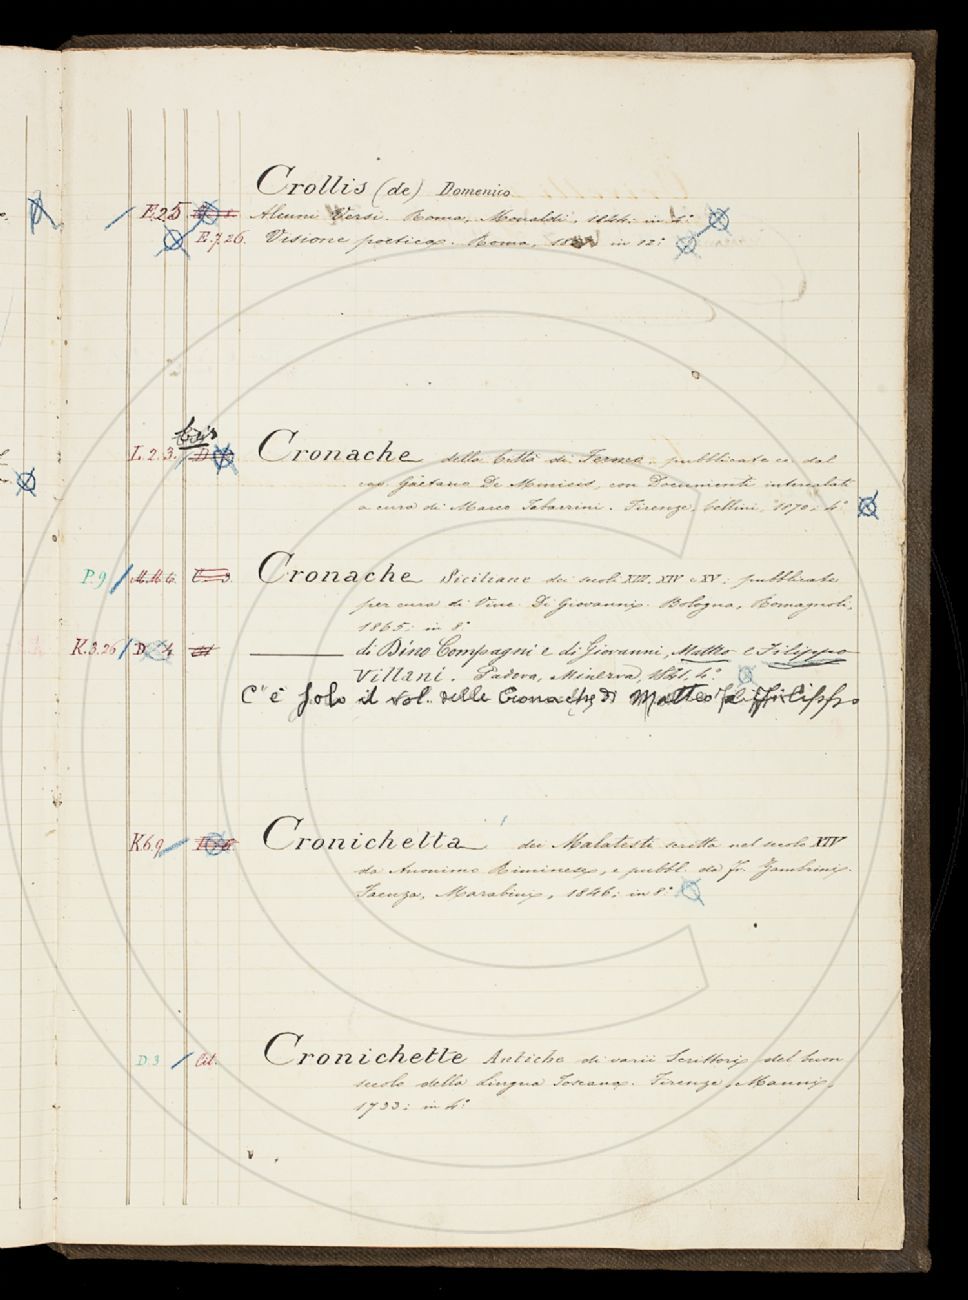 Crollis (de) Domenico
F.25 Alcuni Versi. Roma, Monaldi, 1844; in 4.°
E.7.26. Visione poetica. Roma, in 12.°
bis
L.2.3. Cronache della Città di Fermo. pubblicate dal
cav. Gaetano De Minicis, con Documenti intercalati
a cura di Marco Tabarrini. Firenze, Cellini, 1870; 4.°
P.9 M.M.6. Cronache Siciliane dei secoli XIII, XIV e XV; pubblicate
per cura di Vinc. Di Giovanni. Bologna, Romagnoli,
1865; in 8.°
K.3.26 D. 4 di Dino Compagni e di Giovanni, Matteo e Filippo
Villani. Padova, Minerva, 1841, 4.°
C'è solo il vol. delle Cronache di Matteo e Filippo
K.6.9 Cronichetta dei Malatesti scritta nel secolo XIV
da Anonimo Riminese, e pubbl. da Fr. Zambrini.
Faenza, Marabini, 1846; in 8.°
D.3 Cit. Cronichette Antiche di varii Scrittori del buon
secolo della Lingua Toscana. Firenze, Manni,
1733; in 4.°